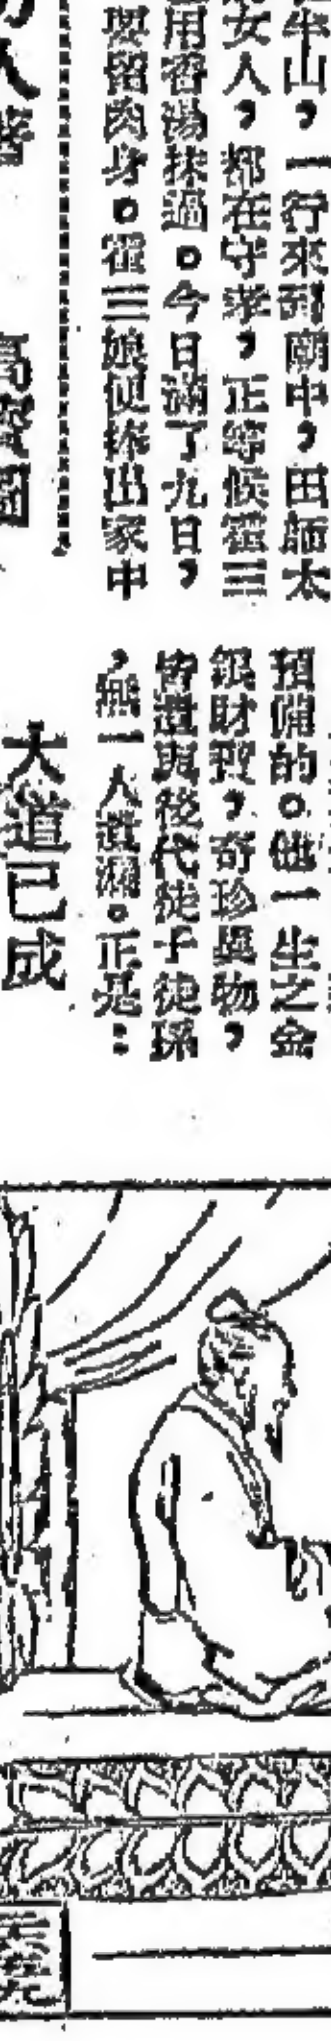 牛山，一行來到廟中，田師太
女人，都在守孝，正等候霍三
用香湯抹過。今日滿了九日，
要留肉身。霍三娘便捧出家中
預備的。他一生之金
銀財寶，奇珍異物，
皆遺與後代徒子徒孫
，無一人貪瀆。正是：
大道已成